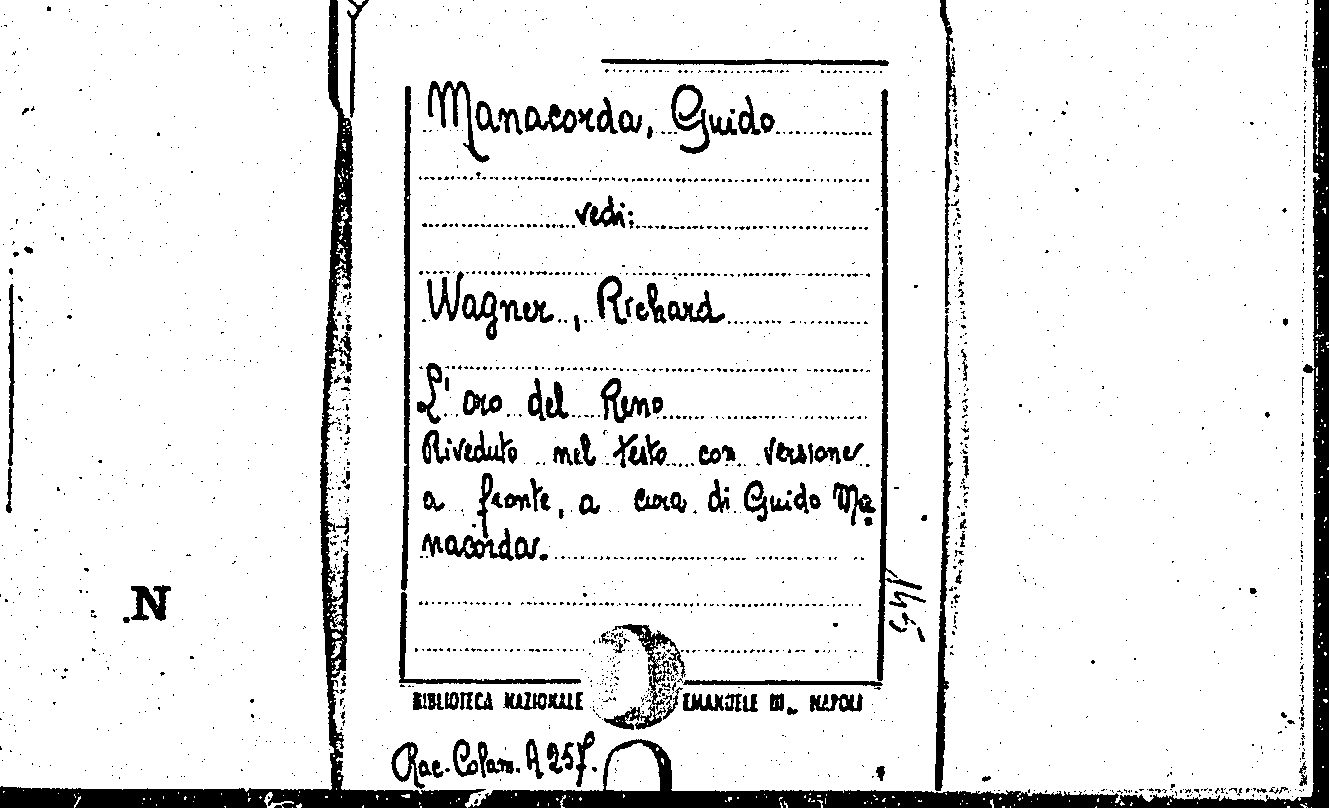 Manacorda, Guido
vedi:
Wagner, Richard
L'oro del Reno
Riveduto nel testo con versione
a fronte, a cura di Guido Ma
nacorda.
N
BIBLIOTECA NAZIONALE EMANUELE III - NAPOLI
Rac. Colam. A 257.